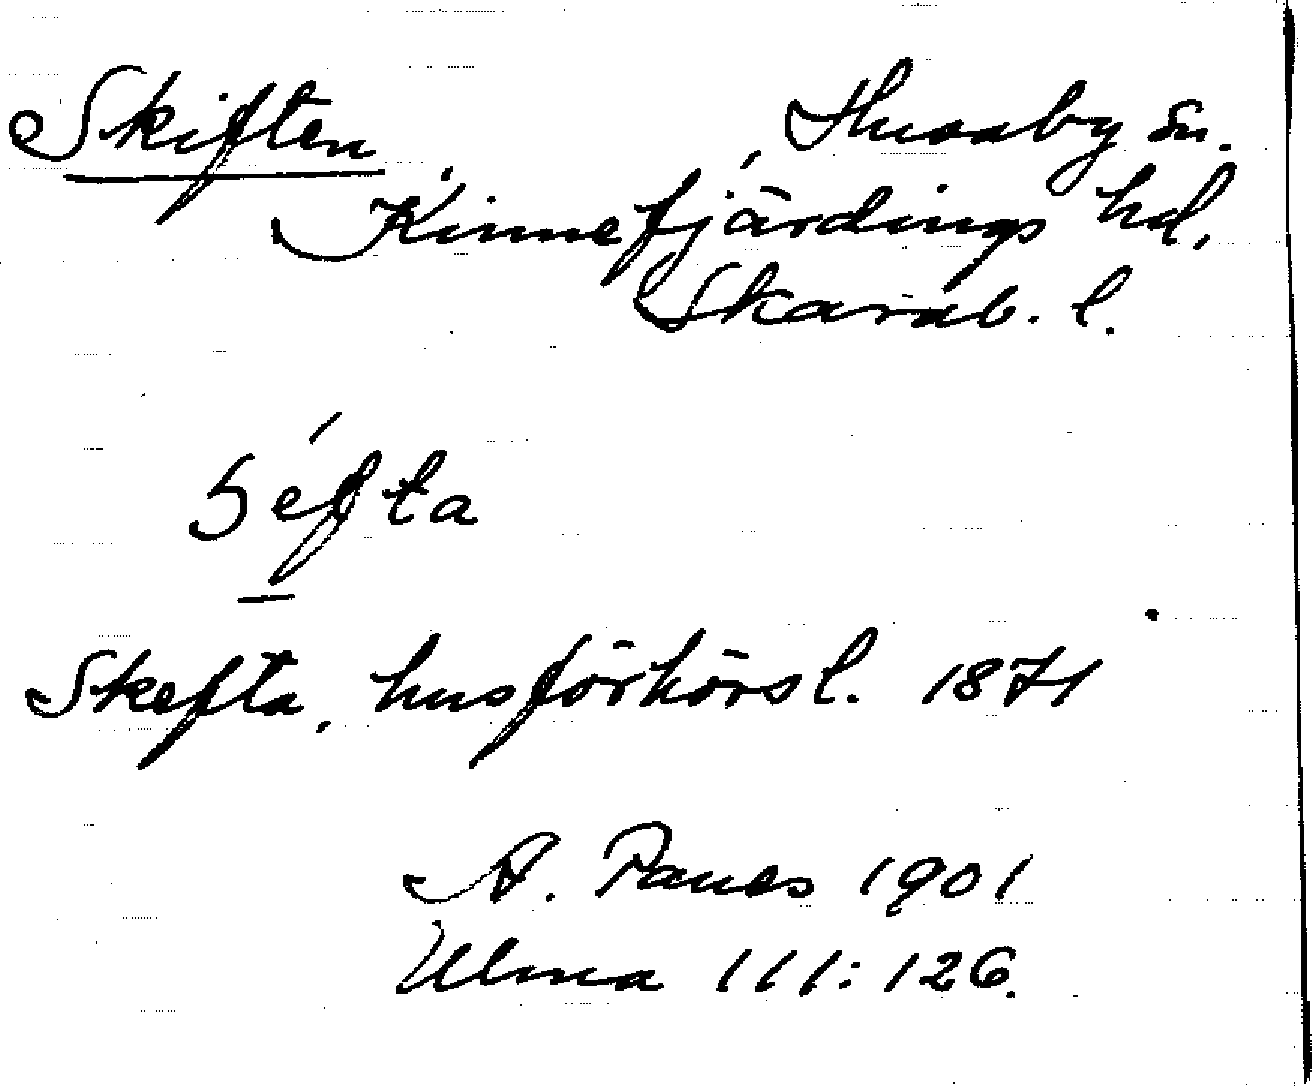 Skiften, Husaby sn.
Kinnefjärdings hd,
Skarab. l.
Sefta
Skefta, husförhörsl. 1871
A. Panes 1901
Ulma 111:126.